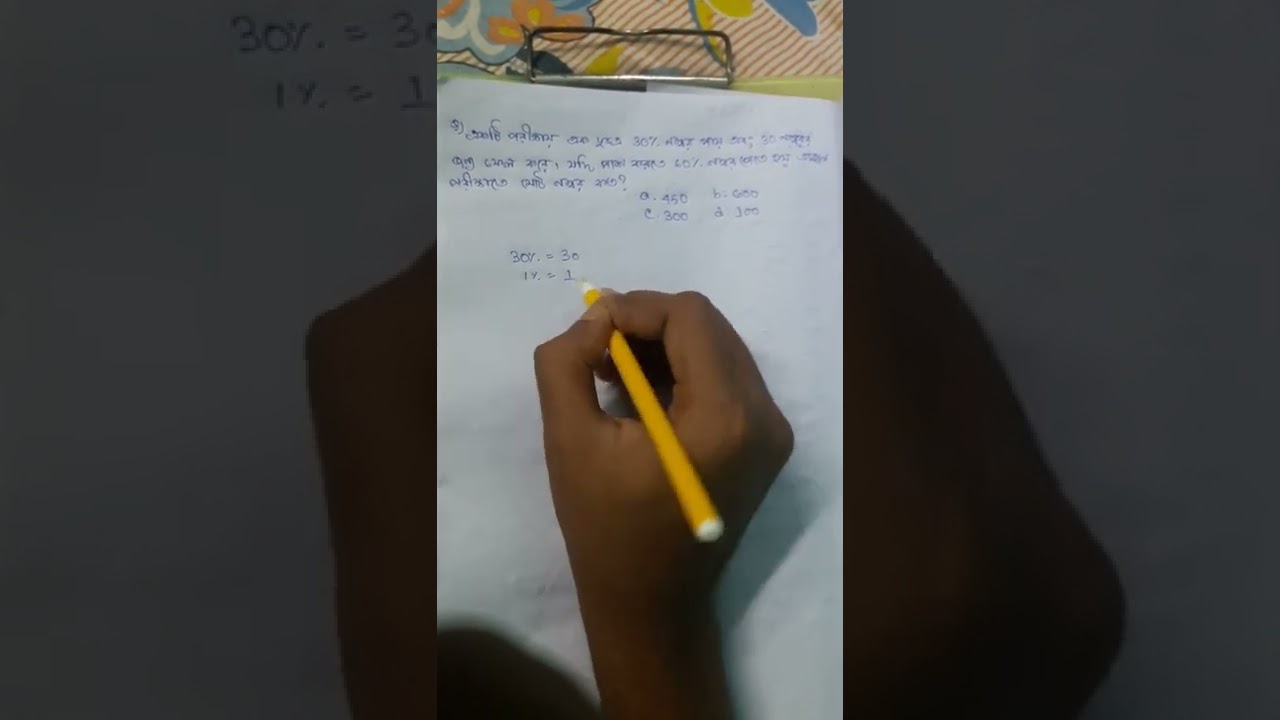 ১) একটি পরীক্ষায় এক ছাত্র 30% নম্বর পায় এবং 30 নম্বরের
জন্য ফেল করে, যদি পাশ করতে 60% নম্বর পেতে হয় তাহলে
পরীক্ষাতে মোট নম্বর কত?
a. 450 b. 600
c. 300 d. 100
30% = 30
1% = 1